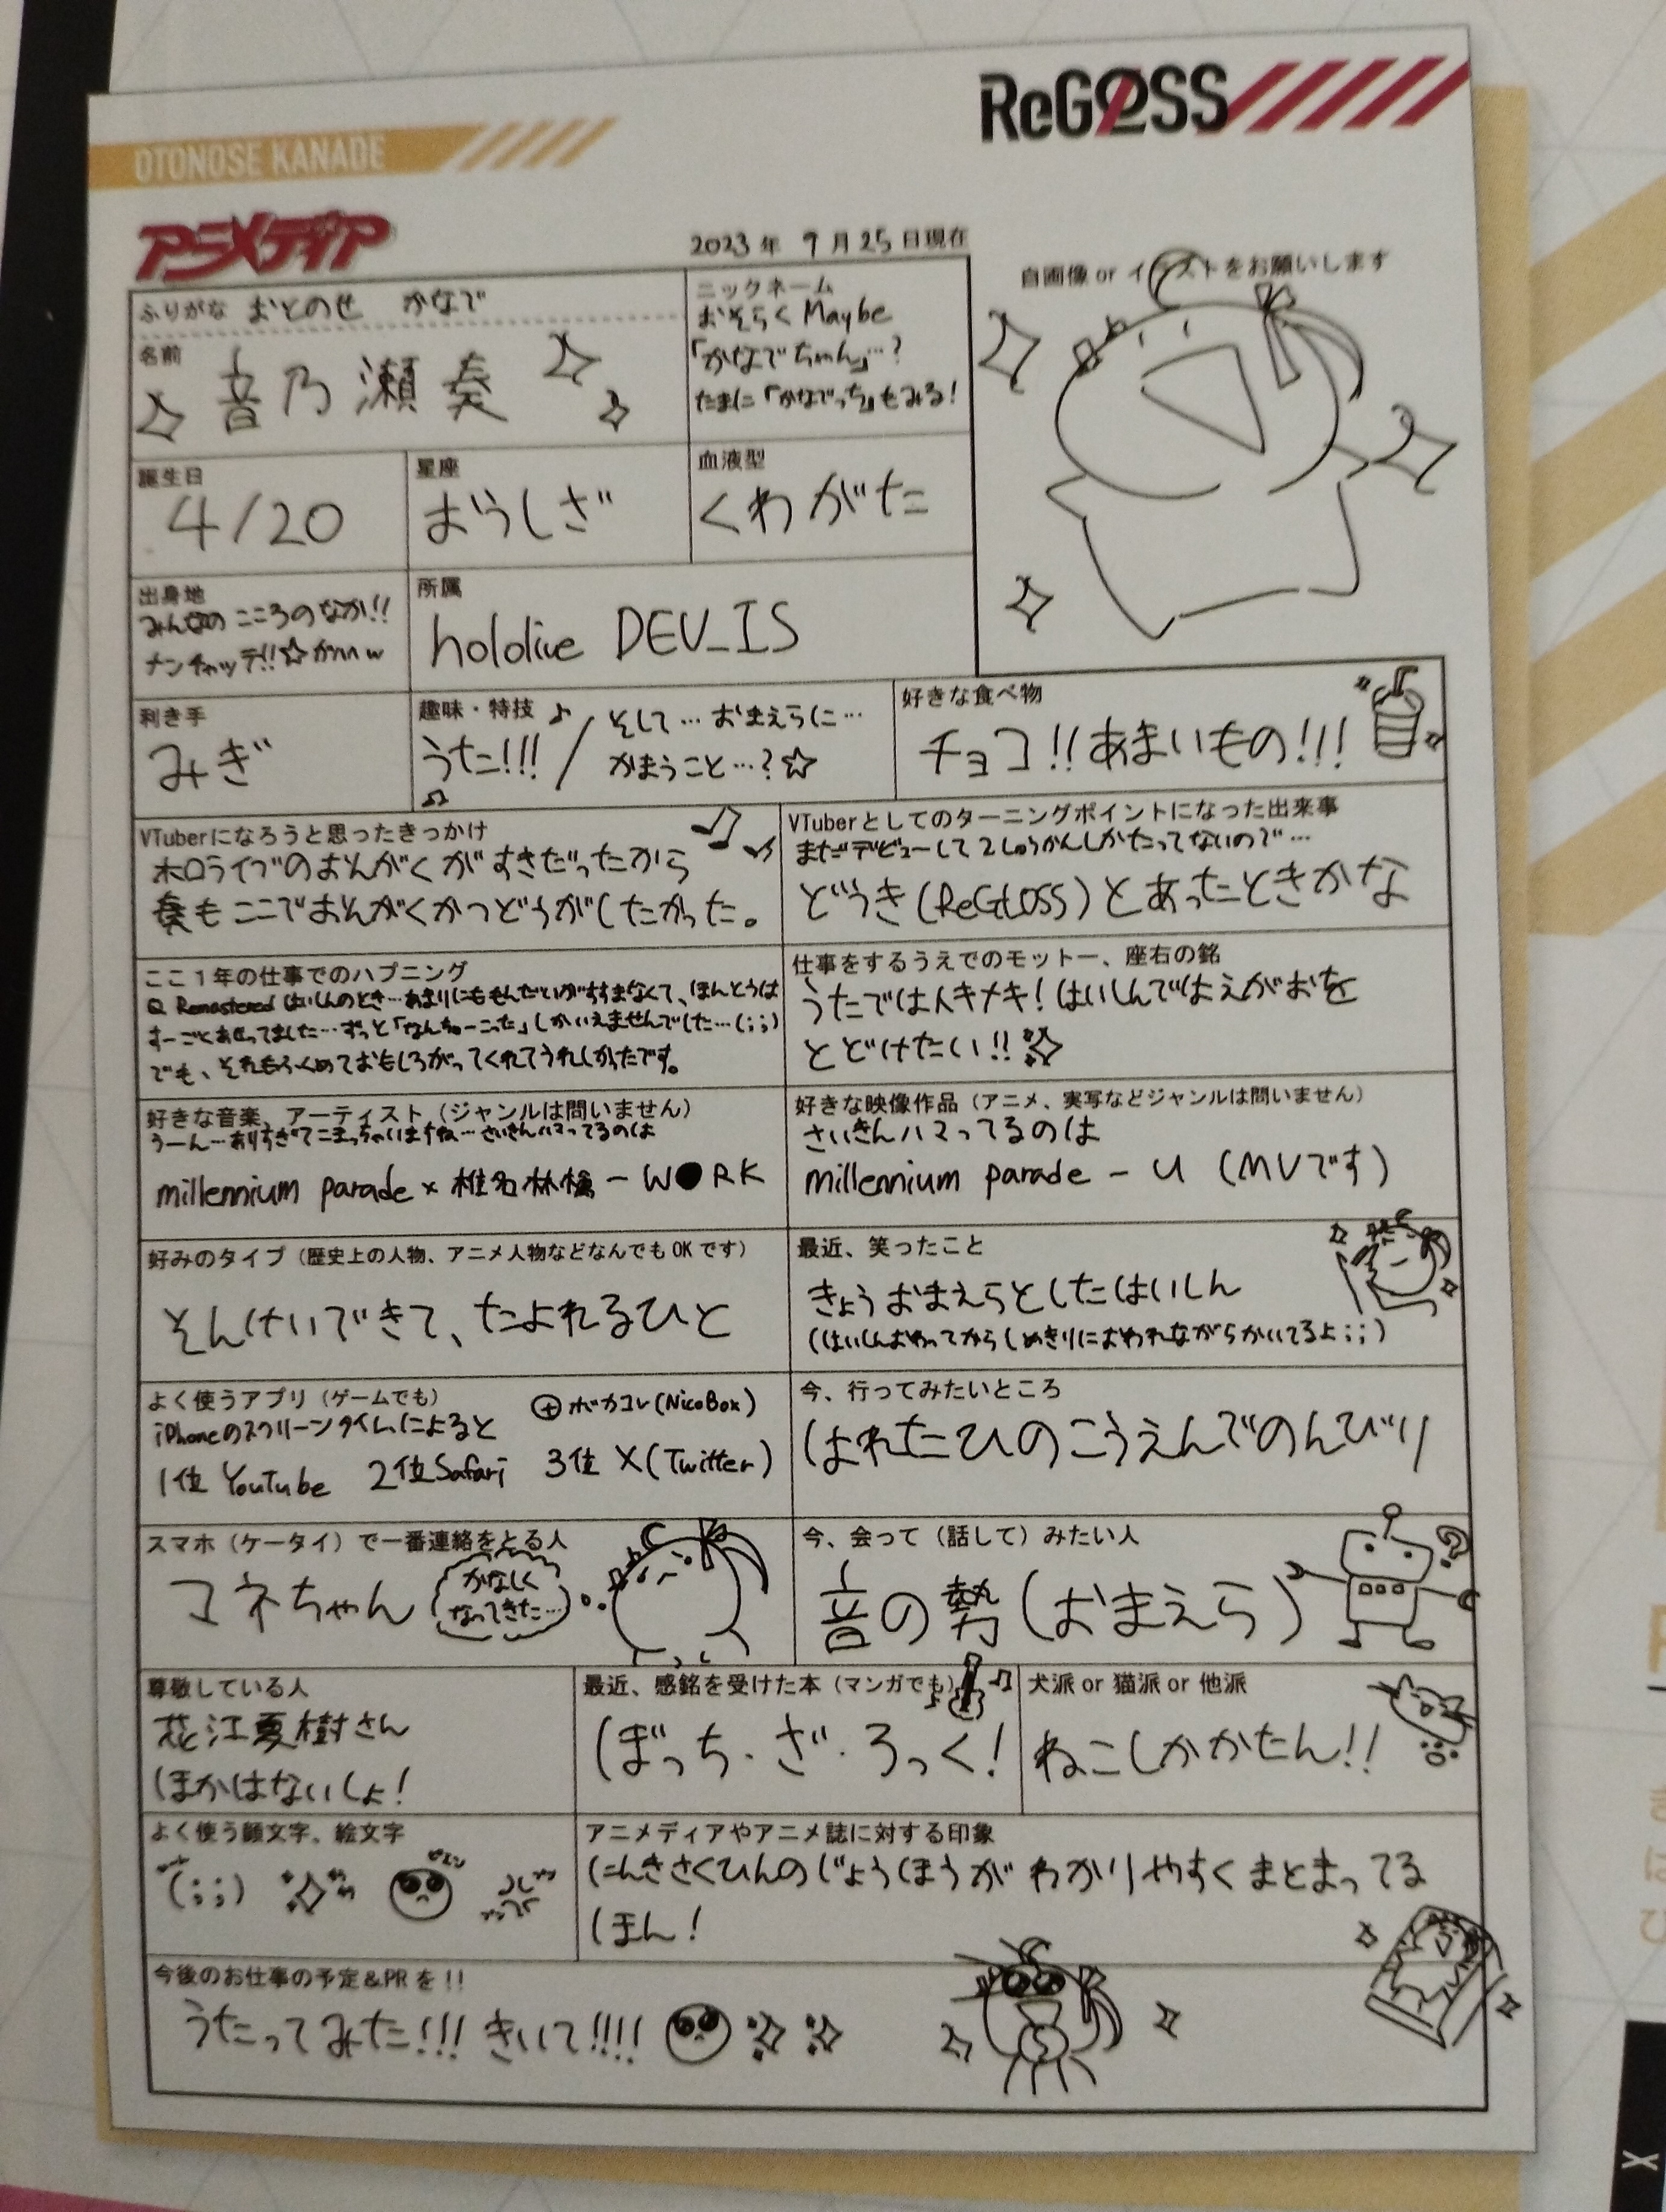 OTONOSE KANADE
ReGLOSS
アニメディア
2023年 9月25日現在
ふりがな おとのせ かなで
名前
音乃瀬奏
ニックネーム
おそらく Maybe
「かなでちゃん」…?
たまに「かなでっち」もみる!
自画像 or イラストをお願いします
誕生日
4/20
星座
おうしざ
血液型
くわがた
出身地
みんなの こころのなか!!
ナンチャッテ!!☆ガハハw
所属
hololive DEV_IS
利き手
みぎ
趣味・特技
うた!!!
/
そして…おまえらに…
かまうこと…?☆
好きな食べ物
チョコ!!あまいもの!!!
VTuberになろうと思ったきっかけ
ホロライブのおんがくがすきだったから
奏もここでおんがくかつどうがしたかった。
VTuberとしてのターニングポイントになった出来事
まだデビューして2しゅうかんしかたってないので…
どうき(ReGLOSS)とあったときかな
ここ1年の仕事でのハプニング
Q Remastered はいしんのとき…あまりにももんだいがすすまなくて、ほんとうは
すーごくあせってました…ずっと「なんちゅーこった」しかいえませんでした…(;;)
でも、それもふくめておもしろがってくれてうれしかったです。
仕事をするうえでのモットー、座右の銘
うたではイキメキ!はいしんではえがおを
とどけたい!!
好きな音楽、アーティスト(ジャンルは問いません)
うーん…ありすぎてこまっちゃいますね…さいきんハマってるのは
millennium parade × 椎名林檎 - W●RK
好きな映像作品(アニメ、実写などジャンルは問いません)
さいきんハマってるのは
millennium parade - U (MVです)
好みのタイプ(歴史上の人物、アニメ人物などなんでもOKです)
そんけいできて、たよれるひと
最近、笑ったこと
きょうおまえらとしたはいしん
(はいしんおわってからしめきりにおわれながらかいてるよ;;)
よく使うアプリ(ゲームでも)
iPhoneのスクリーンタイムによると
⊕ボカコレ(NicoBox)
1位 YouTube 2位 Safari 3位 X(Twitter)
今、行ってみたいところ
はれたひのこうえんでのんびり
スマホ(ケータイ)で一番連絡をとる人
マネちゃん
かなしく
なってきた…
今、会って(話して)みたい人
音の勢(おまえら)
?
尊敬している人
花江夏樹さん
ほかはないしょ!
最近、感銘を受けた本(マンガでも)
ぼっち・ざ・ろっく!
犬派 or 猫派 or 他派
ねこしかかたん!!
よく使う顔文字、絵文字
(;;)
アニメディアやアニメ誌に対する印象
にんきさくひんのじょうほうがわかりやすくまとまってる
ほん!
今後のお仕事の予定&PRを!!
うたってみた!!! きいて!!!!
X